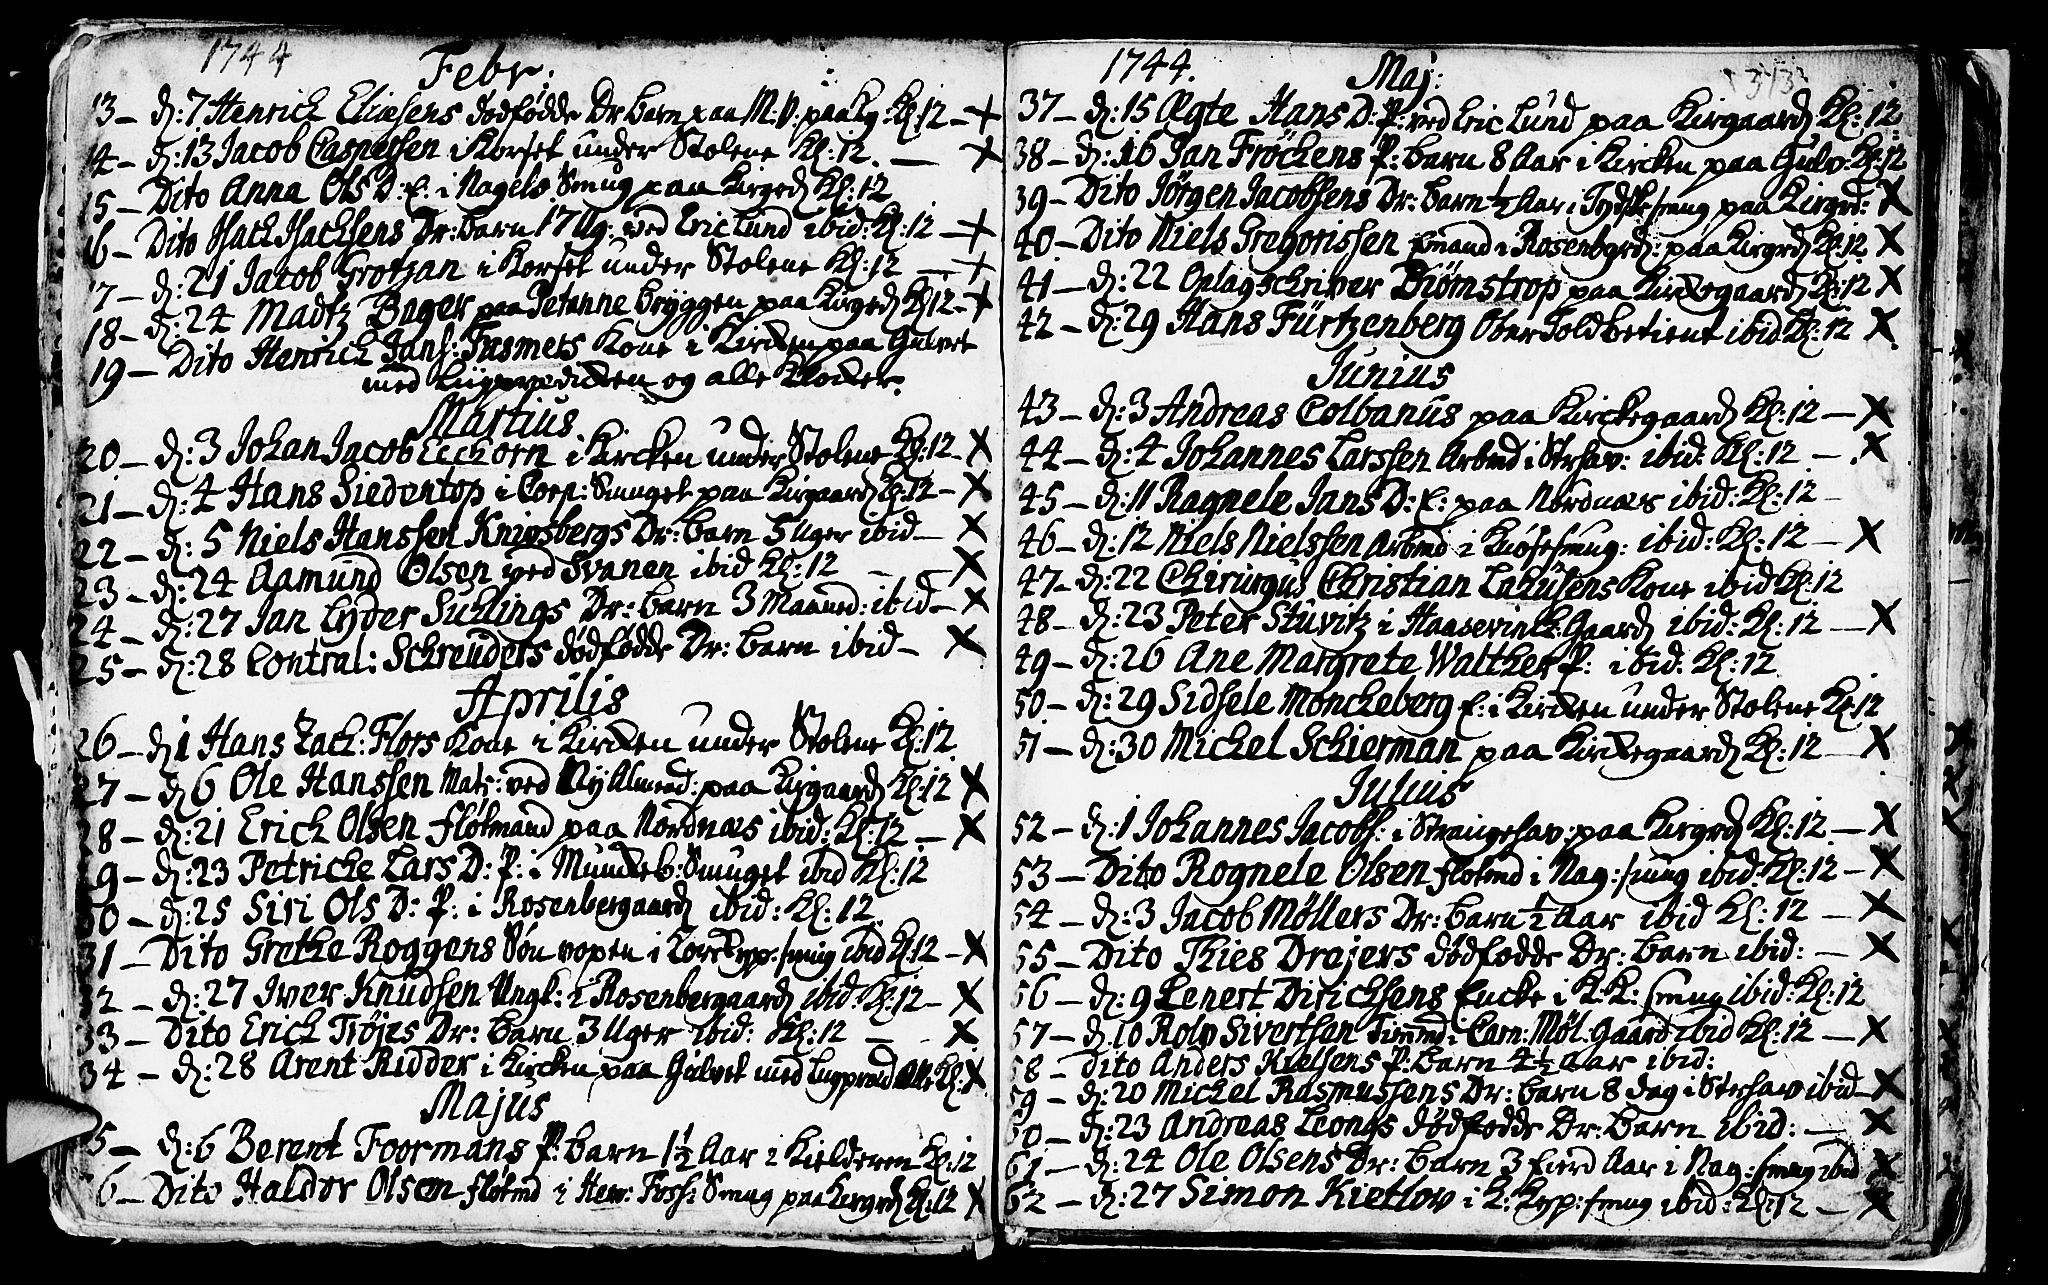 1744
Febr:
13 – d: 7 Henrich Eliæsens dødfødde Dr Barn paa M: P: paa Kg: Kl: 12 – +
14 – d: 13 Jacob Caspersen i Korset under Stolene Kl: 12. — X
15 – Dito Anna Ols D: E: i Nagels Smug paa Kirgrd Kl: 12
16 – Dito Isach Isachsens Dr: Barn 17 Ug: ved Eric Lund ibid: Kl: 12 – +
17 – d: 21 Jacob Grotzan i Korset under Stolene Kl: 12 — +
18 – d: 24 Madtz Bager paa Bryggen paa Kirgrd Kl 12 – +
19 – Dito Henrich Jans: Fasmers Kone i Kircken paa Gulvet
med Liigprædicken og alle Klocker.
Martius
20 – d: 3 Johan Jacob Eichorn i Kircken under Stolene Kl: 12 – X
21 – d: 4 Hans Siedentop i Corp: Smuget paa Kirgaard Kl: 12 – X
22 – d: 5 Niels Hanssen Knigsbergs Dr: Barn 5 Uger ibid — X
23 – d: 24 Aamund Olsen ved Svanen ibid Kl: 12 — X
24 – d: 27 Jan Lyder Suhlings Dr: Barn 3 Maaned: ibid – X
25 – d: 28 Contral: Schreuders dødfødde Dr: Barn ibid – X
Aprilis
26 – d 1 Hans Zach: Flors Kone i Kircken under Stolene Kl: 12
27 – d 6 Ole Hanssen Mats: ved Ny Almend: paa Kirgaard Kl: 12 X
28 – d: 21 Erich Olsen fløtmand paa Nordnæs ibid: Kl: 12 — X
29 – d: 23 Petriche Lars D: P: i Munckeb: Smuget ibid Kl: 12
30 – d: 25 Siri Ols D: P: i Rosenbergaard ibid: Kl: 12
31 – Dito Grethe Roggens Søn vopen i smug ibid Kl: 12 – X
32 – d: 27 Iver Knudsen Ungk: i Rosenbergaard ibid: Kl: 12 – X
33 – Dito Erich Trøjes Dr: Barn 3 Uger ibid: Kl: 12 — X
34 – d: 28 Arent Ridder i Kircken paa Gulvet med Liigpræd Kl: X
Majus
35 – d: 6 Berent Foormans P: Barn 1½ Aar i Kielderen Kl: 12
36 – Dito Haldor Olsen fløtmd i Foss: Smug paa Kirgrd Kl: 12 X
1744.
Maj:
37 – d: 15 Ægte Hans D: P: ved Eric Lund paa Kirgaard Kl: 12
38 – d: 16 Jan Frøchens P: Barn 8 Aar i Kircken paa Gulv: Kl: 12
39 – Dito Jørgen Jacobsens Dr: Barn ½ Aar i Tydskesmug paa Kirgrd: X
40 – Dito Niels Gregorissen i Rosenbgrd: paa Kirgrd Kl: 12 X
41 – d: 22 Oplagschriver Biørnstrop paa Kirckegaard Kl: 12 X
42 – d: 29 Hans Fürtzenberg Ober Toldbetient ibid Kl: 12 X
Junius
43 – d: 3 Andreas Colbanus paa Kirckegaard Kl: 12 — X
44 – d: 4 Johannes Larssen Arbmd i Strhav: ibid: Kl: 12 — X
45 – d: 11 Ragnele Jans D: E: paa Nordnæs ibid: Kl: 12 –
46 – d: 12 Niels Nielssen Arbmd i Kiøssmug: ibid: Kl: 12 — X
47 – d: 22 Chirurgus Christian Lahusens Kone ibid Kl: 12
48 – d: 23 Peter Stuvitz i Haasevinck: Gaard ibid: Kl: 12 — X
49 – d: 26 Ane Margrete Walther P: ibid: Kl: 12
50 – d: 29 Sidsele Monckeberg E: i Kircken under Stolene Kl 12
51 – d: 30 Michel Schierman paa Kirckegaard Kl: 12 — X
Julius
52 – d: 1 Johannes Jacobs: i Strangehav: paa Kirgrd Kl: 12 — X
53 – Dito Rognele Olsen fløtmd i Nag: smug ibid: Kl: 12 – X
54 – d: 3 Jacob Møllers Dr: Barn ½ Aar ibid Kl: 12 — X
55 – Dito Thies Drajers dødfødde Dr: Barn ibid: — X
56 – d: 9 Lenert Dirichsens Encke i K: K: smug ibid: Kl: 12
57 – d: 10 Rolv Sivertsen Timmd i Carn: Møl: Gaard ibid Kl: 12 — X
58 – Dito Anders Nielsens P: Barn 4½ Aar ibid:
59 – d: 20 Michel Rasmussens Dr: Barn 8 dag i Strhav ibid – X
60 – d: 23 Andreas Leongs dødfødde Dr: Barn ibid: — X
61 – d: 24 Ole Olsens Dr: Barn 3 fierd Aar i Nag: smug ibid X
62 – d: 27 Simon Kietlov i K: Kyp: smug ibid: Kl: 12 — X